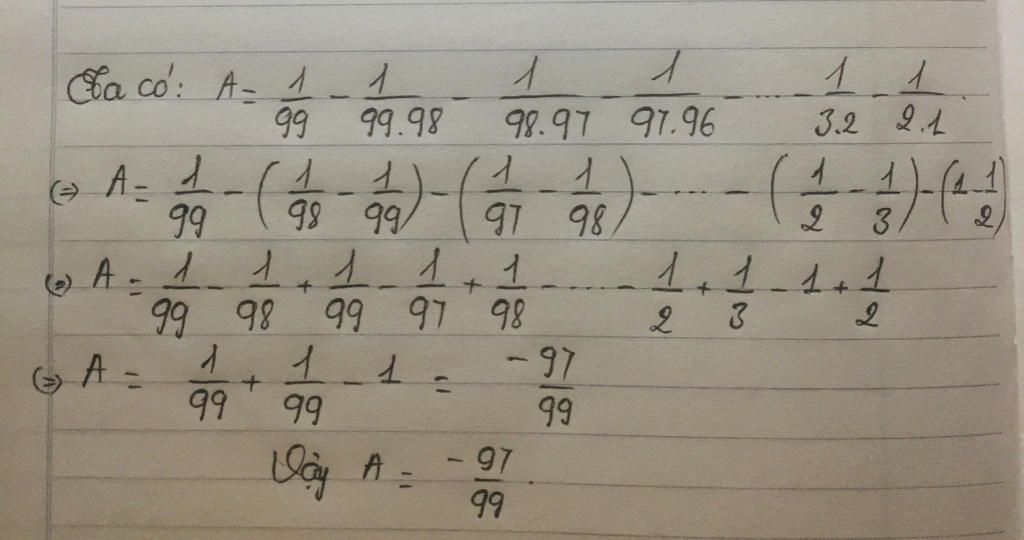 Ta có: A = 1/99 - 1/99.98 - 1/98.97 - 1/97.96 - ... - 1/3.2 - 1/2.1.
(=) A = 1/99 - (1/98 - 1/99) - (1/97 - 1/98) - ... - (1/2 - 1/3) - (1 - 1/2)
(=) A = 1/99 - 1/98 + 1/99 - 1/97 + 1/98 - ... - 1/2 + 1/3 - 1 + 1/2
(=) A = 1/99 + 1/99 - 1 = -97/99
Vậy A = -97/99.